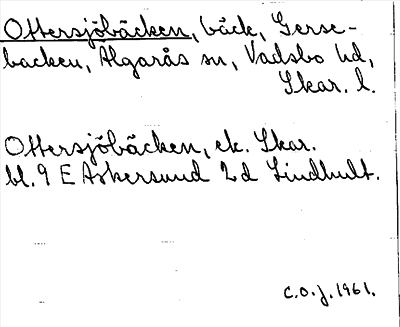 Ottersjöbäcken, bäck, Gerse-
backen, Älgarås sn, Vadsbo hd,
Skar. l.
Ottersjöbäcken, ek. Skar.
bl. 9 E Askersund 2d Lindhult.
C.O.J. 1961.